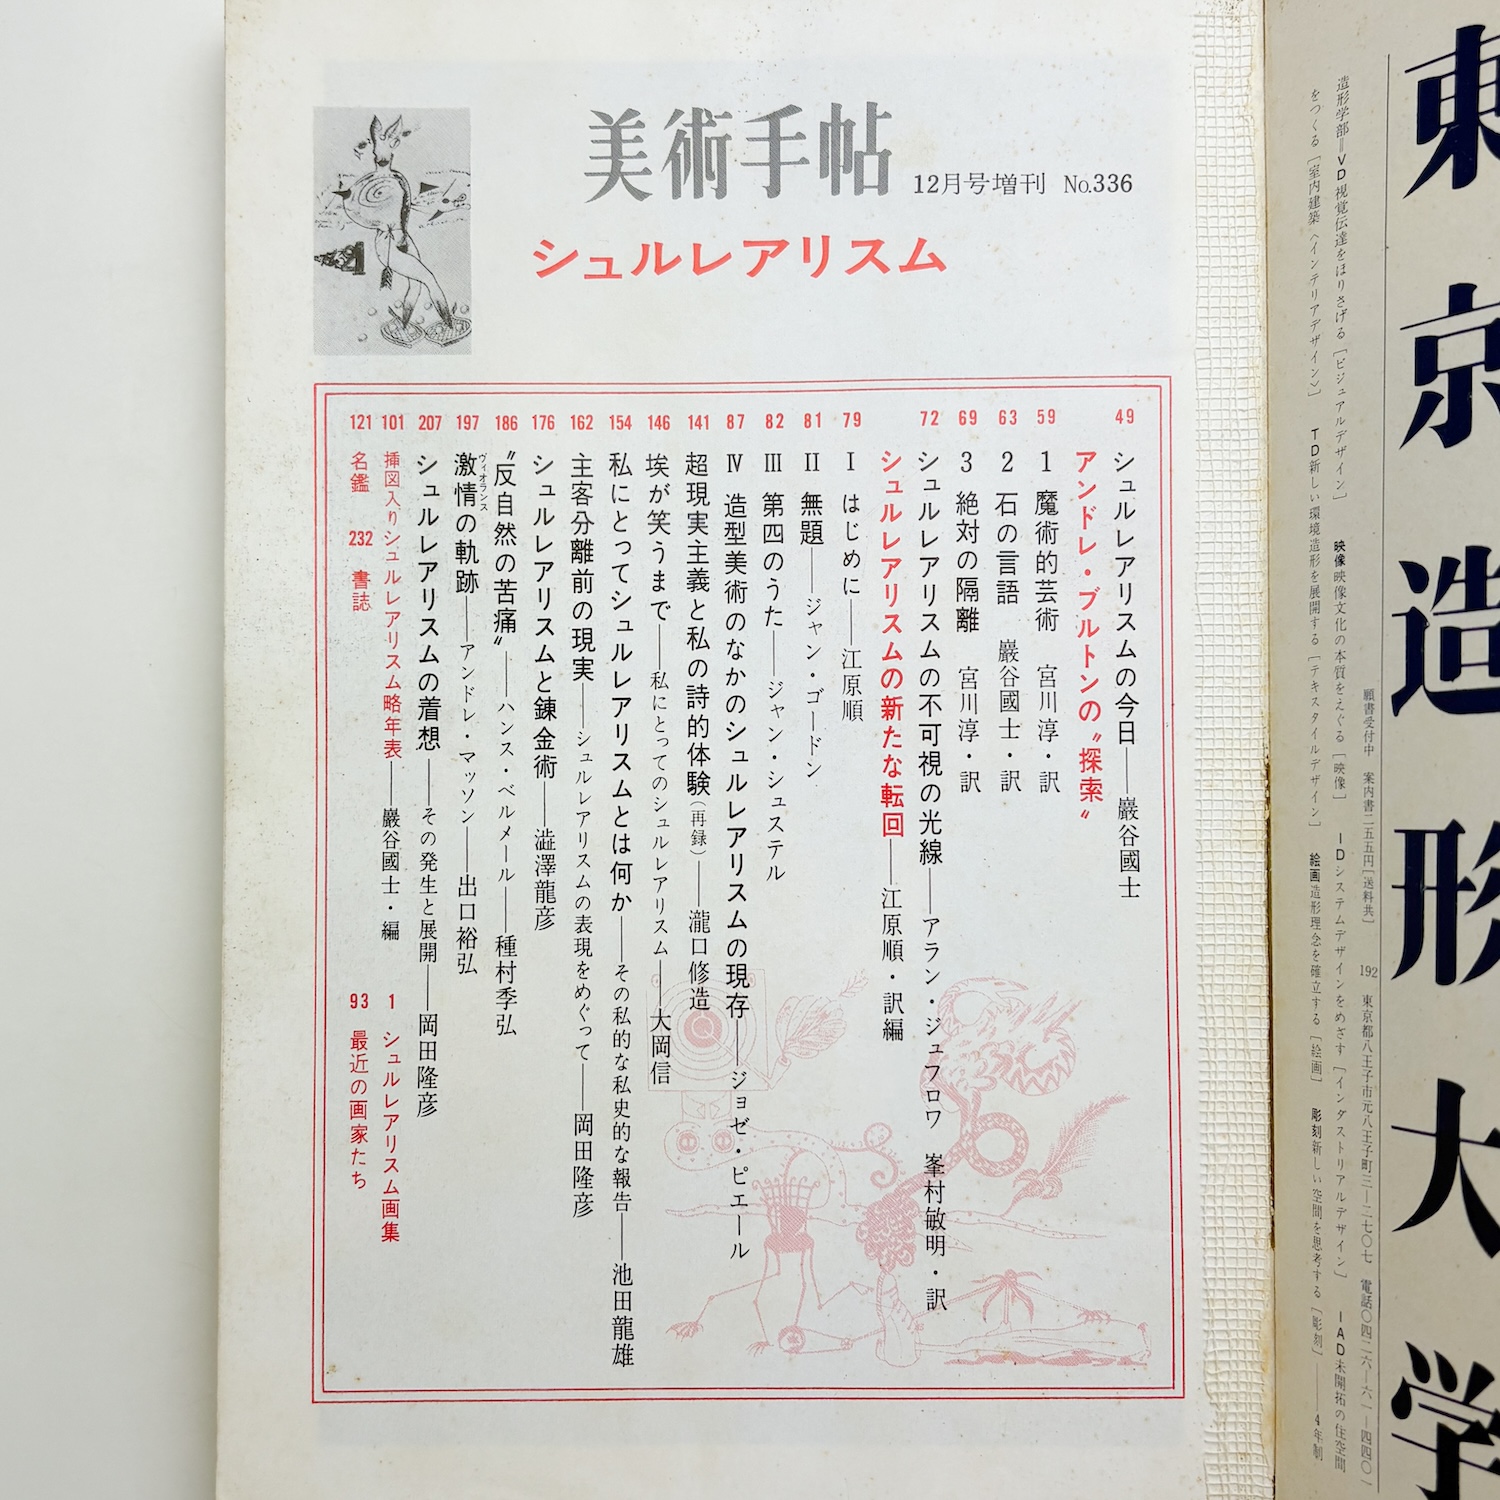 美術手帖
12月号増刊 No.336
シュルレアリスム
49 シュルレアリスムの今日——巖谷國士
アンドレ・ブルトンの〝探索〟
59 1 魔術的芸術 宮川淳・訳
63 2 石の言語 巖谷國士・訳
69 3 絶対の隔離 宮川淳・訳
72 シュルレアリスムの不可視の光線——アラン・ジュフロワ 峯村敏明・訳
シュルレアリスムの新たな転回——江原順・訳編
79 Ⅰ はじめに——江原順
81 Ⅱ 無題——ジャン・ゴードン
82 Ⅲ 第四のうた——ジャン・シュステル
87 Ⅳ 造型美術のなかのシュルレアリスムの現存——ジョゼ・ピエール
141 超現実主義と私の詩的体験（再録）——瀧口修造
146 埃が笑うまで——私にとってのシュルレアリスム——大岡信
154 私にとってシュルレアリスムとは何か——その私的な私史的な報告——池田龍雄
162 主客分離前の現実——シュルレアリスムの表現をめぐって——岡田隆彦
176 シュルレアリスムと錬金術——澁澤龍彦
186 〝反自然の苦痛〟——ハンス・ベルメール——種村季弘
197 激情の軌跡——アンドレ・マッソン——出口裕弘
ヴィオランス
207 シュルレアリスムの着想——その発生と展開——岡田隆彦
101 挿図入りシュルレアリスム略年表——巖谷國士・編
1 シュルレアリスム画集
121 名鑑
232 書誌
93 最近の画家たち
東京造形大学
願書受付中 案内書二五五円［送料共］ 192 東京都八王子市元八王子町三—二七〇七 電話〇四二六—六一—四四〇一
造形学部＝VD視覚伝達をほりさげる［ビジュアルデザイン］ 映像映像文化の本質をえぐる［映像］ IDシステムデザインをめざす［インダストリアルデザイン］ IAD未開拓の住空間
をつくる［室内建築〈インテリアデザイン〉］ TD新しい環境造形を展開する［テキスタイルデザイン］ 絵画造形理念を確立する［絵画］ 彫刻新しい空間を思考する［彫刻］——4年制